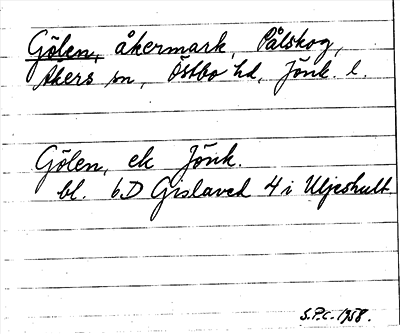 Gölen, åkermark, Pålskog,
Åkers sn, Östbo hd, Jönk. l.
Gölen, ek Jönk.
bl. 6D Gislaved 4 i Uljeshult
S.P.C. 1958.